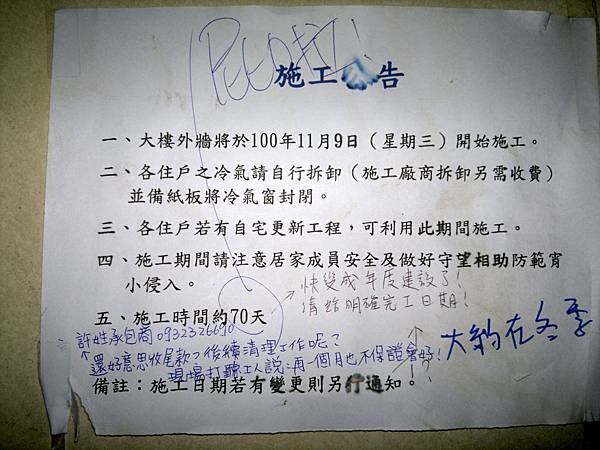 施工公告
一、大樓外牆將於100年11月9日（星期三）開始施工。
二、各住戶之冷氣請自行拆卸（施工廠商拆卸另需收費）
並備紙板將冷氣窗封閉。
三、各住戶若有自宅更新工程，可利用此期間施工。
四、施工期間請注意居家成員安全及做好守望相助防範宵
小侵入。
→快變成年度建設了！
請給明確完工日期！
五、施工時間約70天
大約在冬季
許姓承包商0932326690
↑還好意思收尾款？後續清理工作呢？
現場打聽工人說：再一個月也不保證會好！
備註：施工日期若有變更則另行通知。